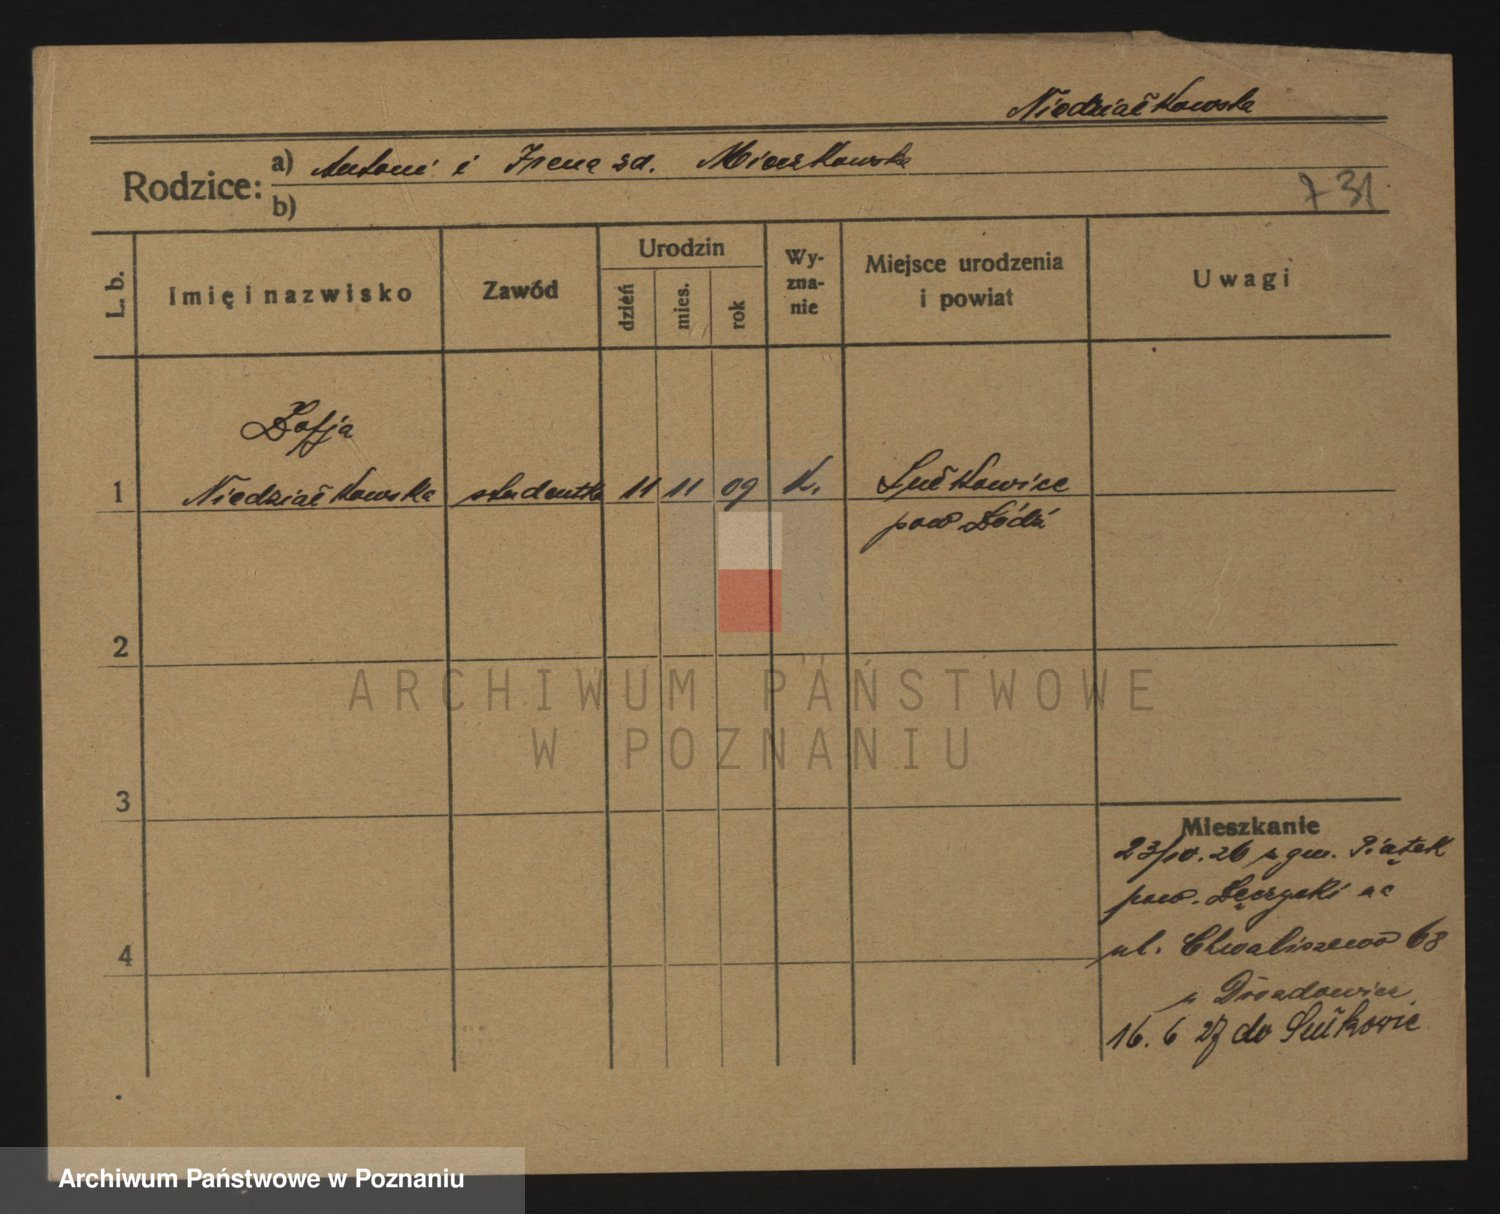 Niedziałkowska
Rodzice: a) Antoni i Irena zd. Mieczkowska
b)
731
L. b.
Imię i nazwisko
Zawód
Urodzin
dzień
mies.
rok
Wy-
zna-
nie
Miejsce urodzenia
i powiat
Uwagi
Zofja
1 Niedziałkowska studentka 11 11 09 k. Sułkowice
pow Łódź
2
ARCHIWUM PAŃSTWOWE
W POZNANIU
3
Mieszkanie
23/10. 26 z gm. Piątek
pow. Łęczycki na
4
ul. Chwaliszewo 68
u
16. 6 27 do Sułkowic
Archiwum Państwowe w Poznaniu